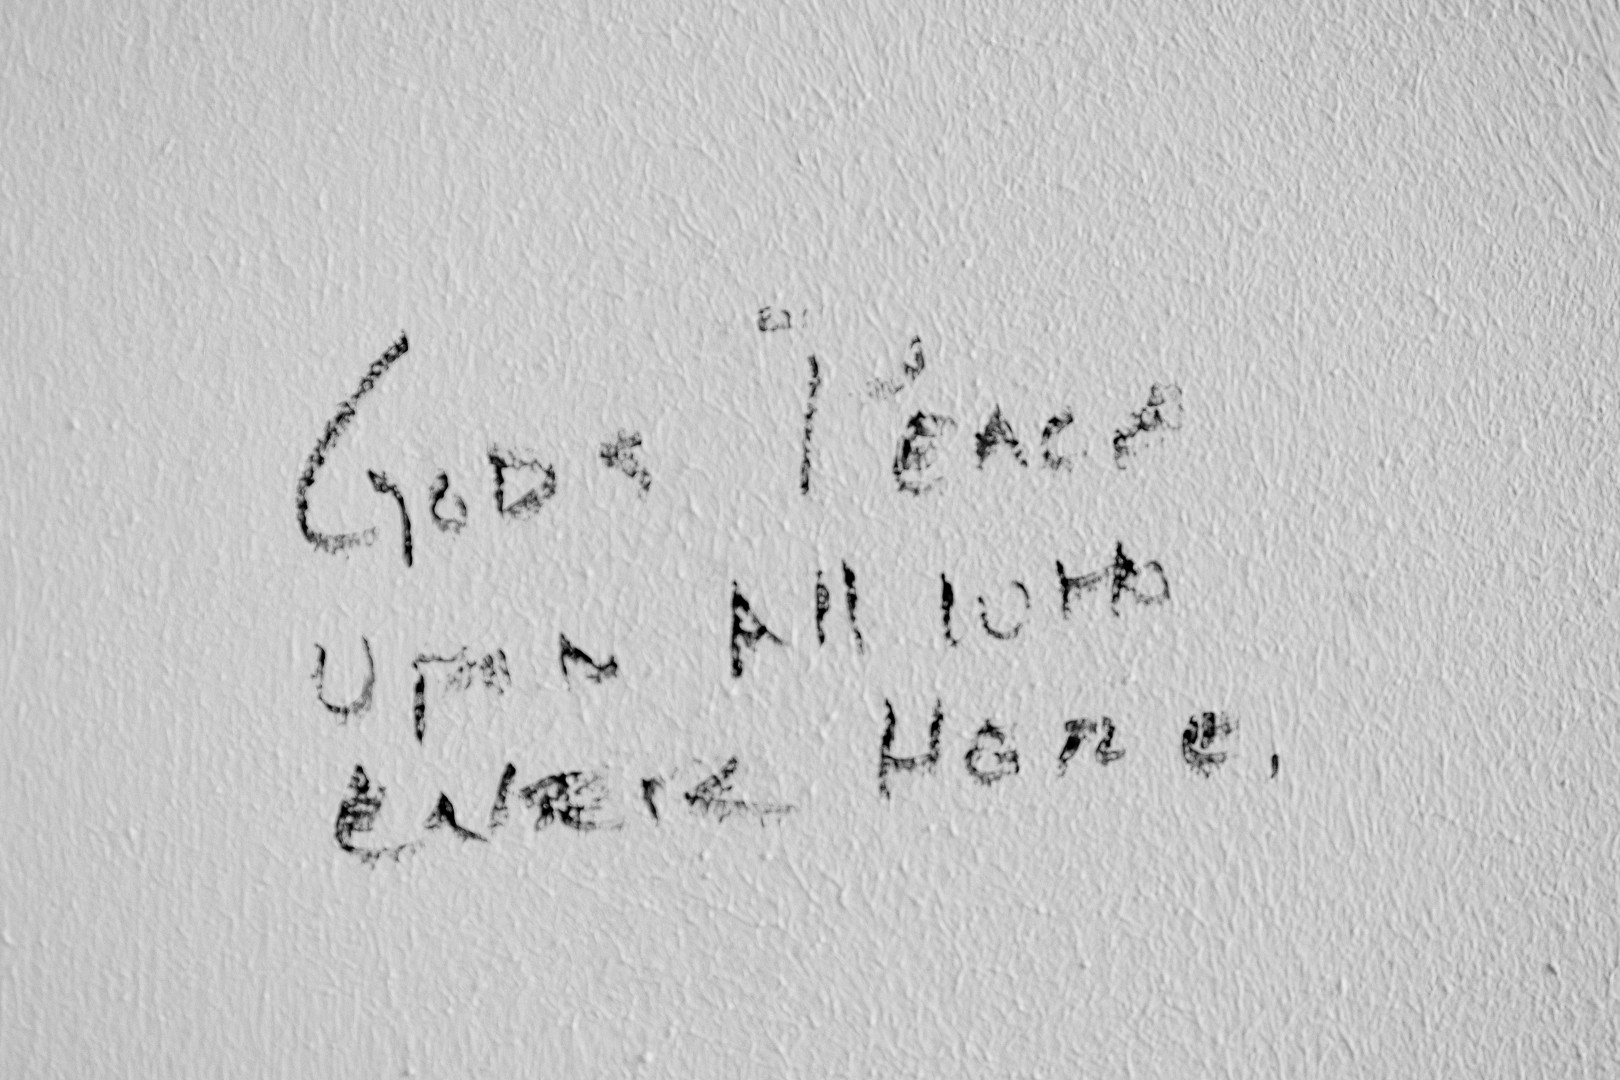 GODS PEACE
UPON All WHO
ENTER HERE.